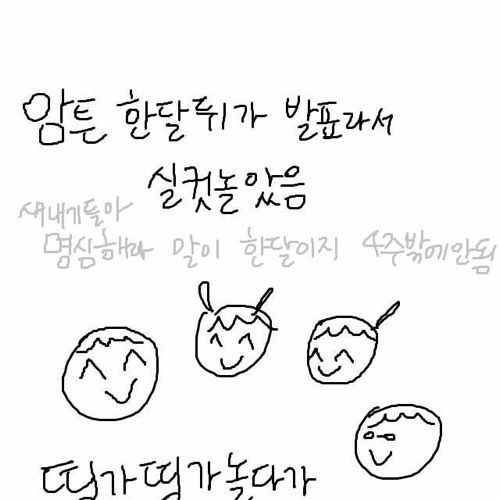 암튼 한달뒤가 발표라서
실컷놀았음
새내기들아
명심해라 말이 한달이지 4주밖에안됨
띵가띵가놀다가